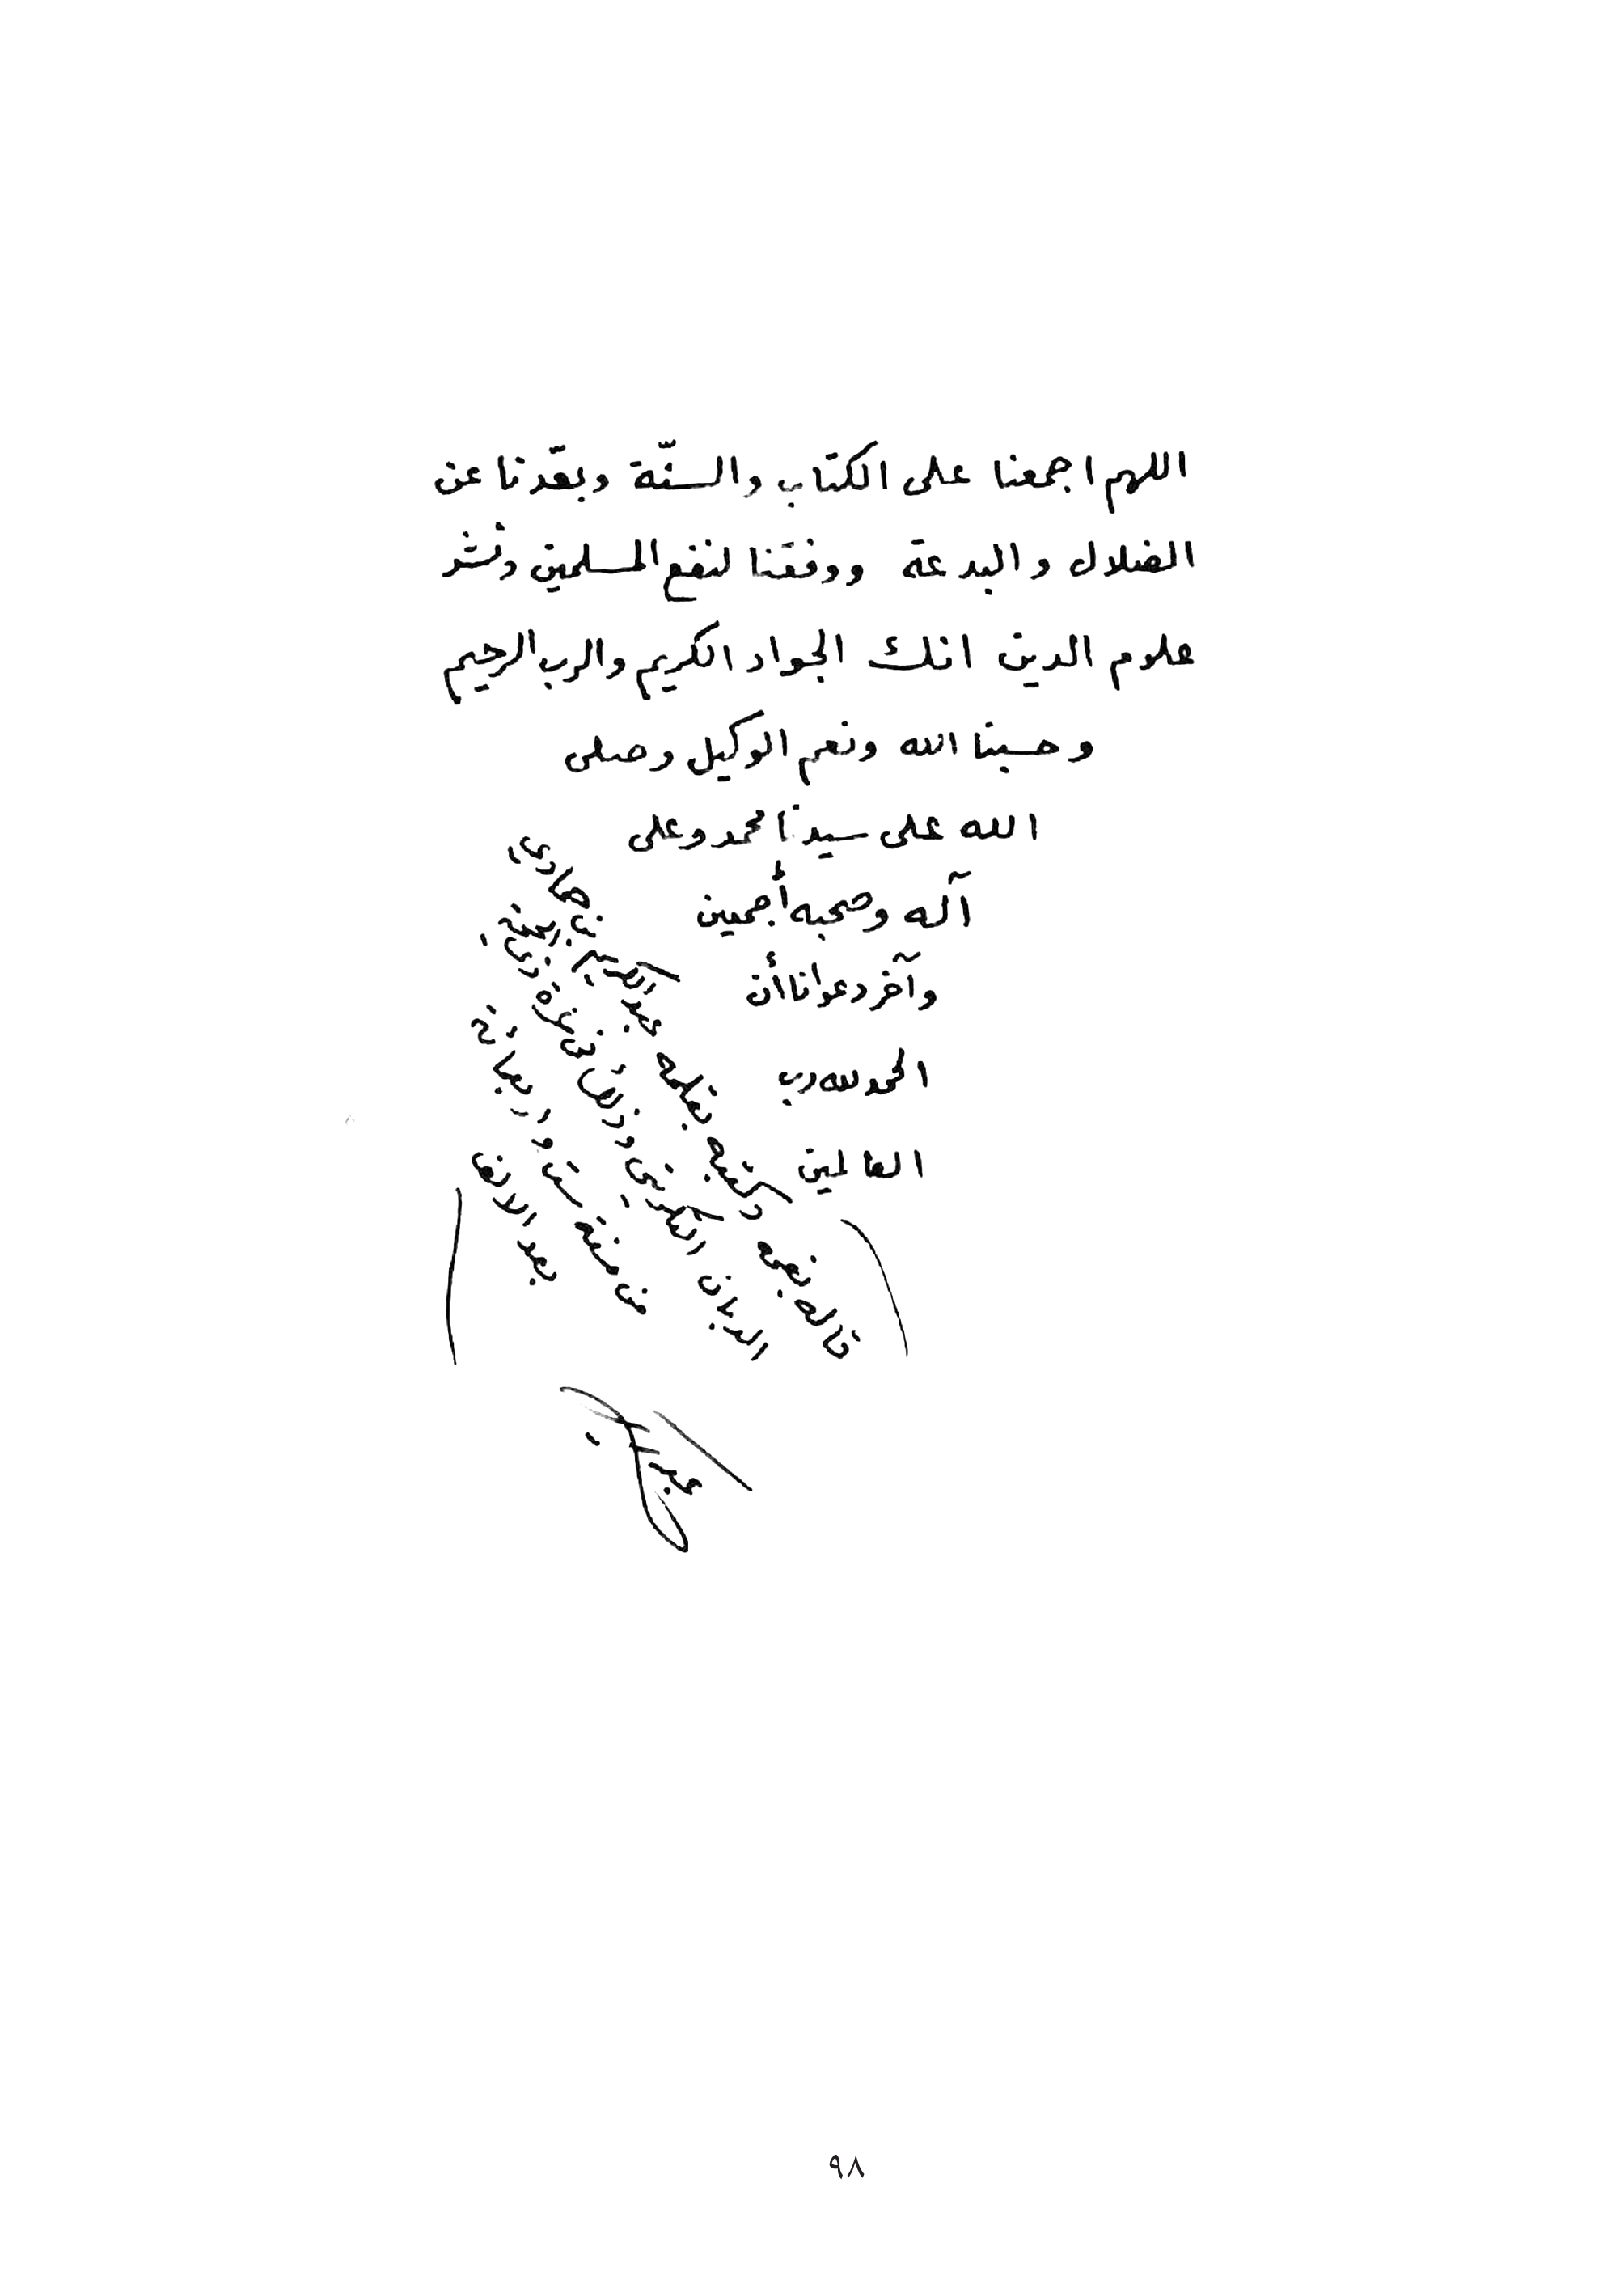 اللهم اجمعنا على الكتاب والسنّة وبعّدنا عن
الضلال والبدعة ووفقنا لنفع المسلمين ونشر
علوم الدين انك الجواد الكريم والرب الرحيم
وحسبنا الله ونعم الوكيل وصلى
الله على سيدنا محمد وعلى
آله وصحبه أجمعين
وآخر دعوانا أن
الحمد لله رب
العالمين
قاله بفمه وكتبه بقلمه عبد الكريم بن حمادي
الدبان التكريتي وذلك في غرة ذي الحجة
من سنة ست وأربعمائة
بعد الالف
عبد الكريم
٩٨